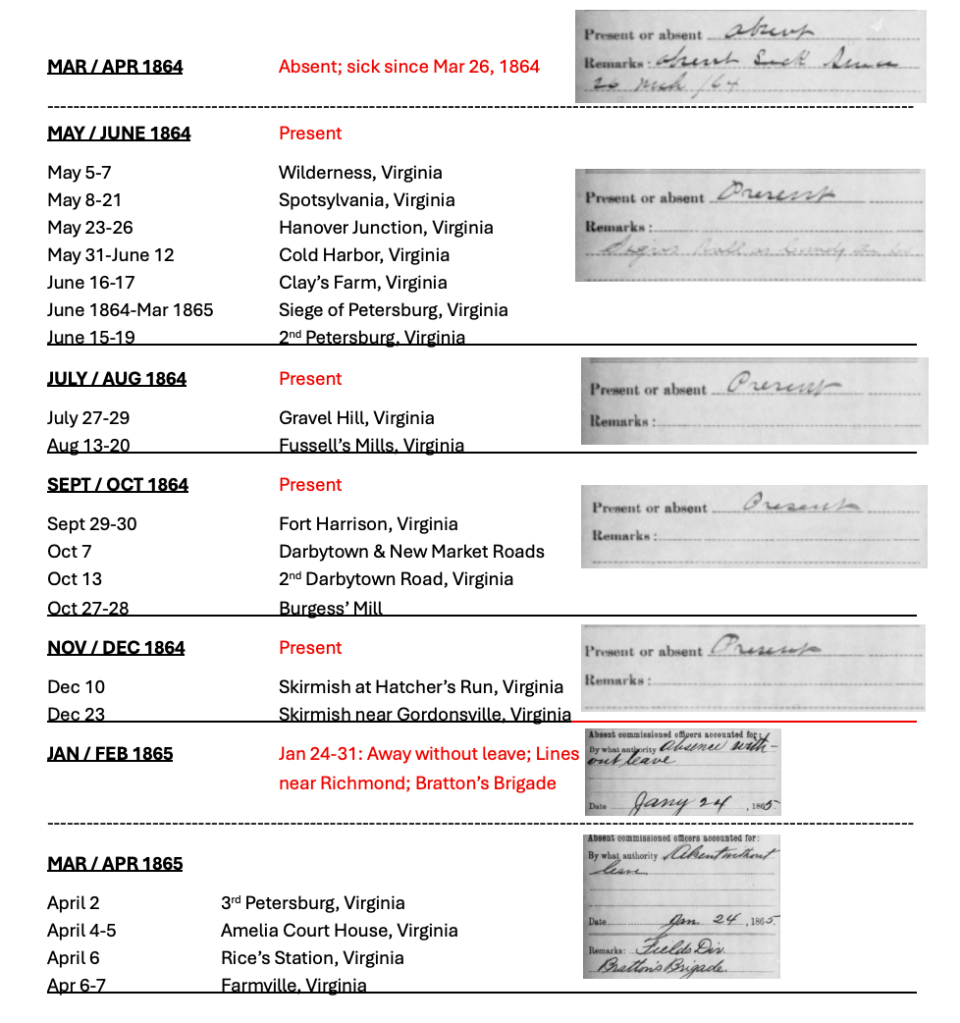 MAR / APR 1864 Absent; sick since Mar 26, 1864
Present or absent absent
Remarks: absent Sick Since
26 Mch /64
MAY / JUNE 1864 Present
May 5-7 Wilderness, Virginia
May 8-21 Spotsylvania, Virginia
May 23-26 Hanover Junction, Virginia
May 31-June 12 Cold Harbor, Virginia
June 16-17 Clay’s Farm, Virginia
June 1864-Mar 1865 Siege of Petersburg, Virginia
June 15-19 2nd Petersburg, Virginia
Present or absent Present
Remarks:
Signs Roll as Comdg
JULY / AUG 1864 Present
July 27-29 Gravel Hill, Virginia
Aug 13-20 Fussell’s Mills, Virginia
Present or absent Present
Remarks:
SEPT / OCT 1864 Present
Sept 29-30 Fort Harrison, Virginia
Oct 7 Darbytown & New Market Roads
Oct 13 2nd Darbytown Road, Virginia
Oct 27-28 Burgess’ Mill
Present or absent Present
Remarks:
NOV / DEC 1864 Present
Dec 10 Skirmish at Hatcher’s Run, Virginia
Dec 23 Skirmish near Gordonsville, Virginia
Present or absent Present
Remarks:
JAN / FEB 1865 Jan 24-31: Away without leave; Lines
near Richmond; Bratton’s Brigade
Absent commissioned officers accounted for:
By what authority Absence with-
out leave
Date Jany 24, 1865
MAR / APR 1865
April 2 3rd Petersburg, Virginia
April 4-5 Amelia Court House, Virginia
April 6 Rice’s Station, Virginia
Apr 6-7 Farmville, Virginia
Absent commissioned officers accounted for:
By what authority Absent without
leave
Date Jan 24, 1865
Remarks: Fields Div
Bratton's Brigade.